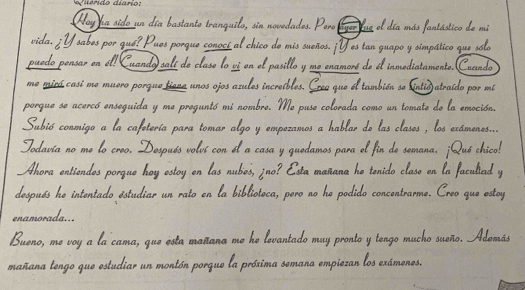 Querido diario:
Hoy ha sido un día bastante tranquilo, sin novedades. Pero ayer fue el día más fantástico de mi
vida. ¿Y sabes por qué? Pues porque conocí al chico de mis sueños. ¡Y es tan guapo y simpático que sólo
puedo pensar en él! Cuando salí de clase lo vi en el pasillo y me enamoré de él inmediatamente. Cuando
me miró casi me muero porque tiene unos ojos azules increíbles. Creo que él también se sintió atraído por mí
porque se acercó enseguida y me preguntó mi nombre. Me puse colorada como un tomate de la emoción.
Subió conmigo a la cafetería para tomar algo y empezamos a hablar de las clases , los exámenes...
Todavía no me lo creo. Después volví con él a casa y quedamos para el fin de semana. ¡Qué chico!
Ahora entiendes porque hoy estoy en las nubes, ¿no? Esta mañana he tenido clase en la facultad y
después he intentado estudiar un rato en la biblioteca, pero no he podido concentrarme. Creo que estoy
enamorada...
Bueno, me voy a la cama, que esta mañana me he levantado muy pronto y tengo mucho sueño. Además
mañana tengo que estudiar un montón porque la próxima semana empiezan los exámenes.